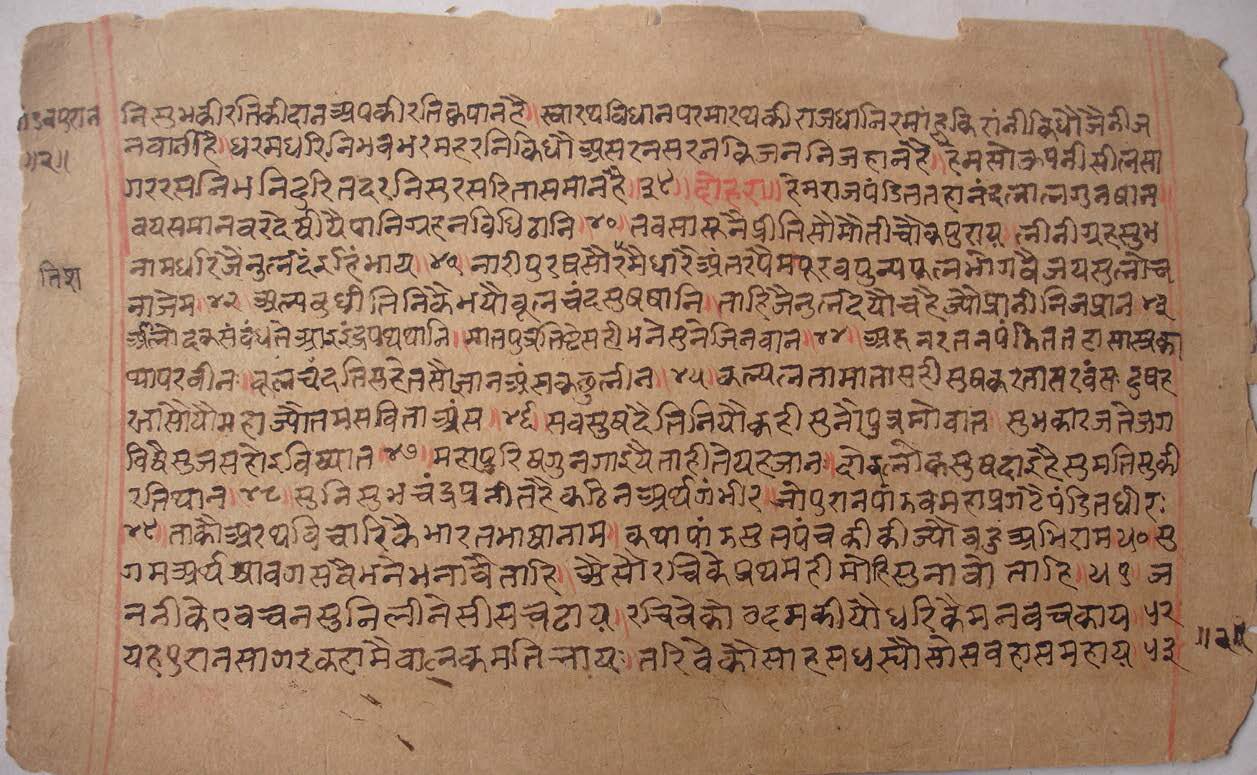 नि सुभकीरतिकी दान अपकीरति कृपान है॥ स्वारथ विधान परमारथकी राजधानि रमाहूकि रांनी किधौ जैनी ज
नवानी है॥ धरमधरिनि भवभरमहरनि किधौ असरनसरन कि जननि जहान है॥ हेमसो उपनी सीलसा
गर रसनि भनि दुरितदरनि सुरसरिता समान है॥ ३९॥ दोहरा॥ हेमराज पंडित तहा नंदलाल गुनषान
वयसमान वर देषीयै पानिग्रहन विधि ठानि॥ ४०॥ तब सासूनै प्रीतिसौ मोती चौक पुराय॥ लीनी ग्रह सुभ
नाम धरि जैनुलदे इहि भाय॥ ४१॥ नारी पुरषसौ रमै धारै अंतर पेम पूरव पुन्य फल भोगवै जय सुलोच
ना जेम॥ ४२॥ अल्पबुधी तिनिकै भयौ बूलचंद सुषषानि॥ ताहि जैनुलदे यौ चहै ज्यौ प्रानी निज प्रान॥ ४३
अंनोदक संबंध तै आइ इंद्रपथ थानि॥ मात पुत्र तिष्टे सही भने सुने जिनवान॥ ४४॥
व्या परवीन॥ बूलचंद तिसु हेतसौ ज्ञान अंस कछु लीन॥ ४५॥ कल्पलता माता सही सुषकरता सरवंस दुषह
रता सौ यौ महा ज्यौ तम सविता अंस॥ ४६॥ सब सुष दै तिनि यौ कही सुनौ पुत्र मो बात॥ सुभ कारज तै जग
विषै सुजस होइ विष्यात॥ ४७॥ महापुरिष गुन गाइयै ताही तै यह जान॥ दोइ लोक सुषदाइ है सुमति सुकी
रति थान॥ ४८॥ सुनि सुभचंद्रप्रनीत है कठिन अर्थ गंभीर॥ जो पुरान पांडव महा प्रगटै पंडित धीर॥
४९॥ ताकौ अरथ विचारि कै भारत भाषा नाम॥ कथा पांडुसुत पंचकी कीज्यौ बहु अभिराम ५०॥ सु
गम अर्थ श्रावग सबै भनै भनावै ताहि॥ अैसो रचिकै प्रथम ही मोहि सुनावो ताहि॥ ५१॥ ज
ननीके ए वचन सुनि लीने सीस चढाय॥ रचिवेको उद्दम कीयौ धरिकै मन वच काय॥ ५२
यह पुरान सागर कहा मै बालक मति भाय॥ तरिवेकौ साहस धर्यौ सो सब हास सहाय॥ ५३
॥२॥